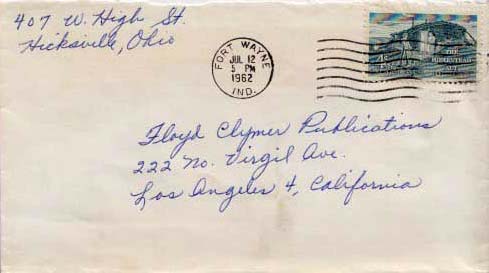 407 W. High St.
Hicksville, Ohio
FORT WAYNE
JUL 12
5 PM
1962
IND.
4¢
THE
HOMESTEAD
ACT
Floyd Clymer Publications
222 No. Virgil Ave.
Los Angeles 4, California